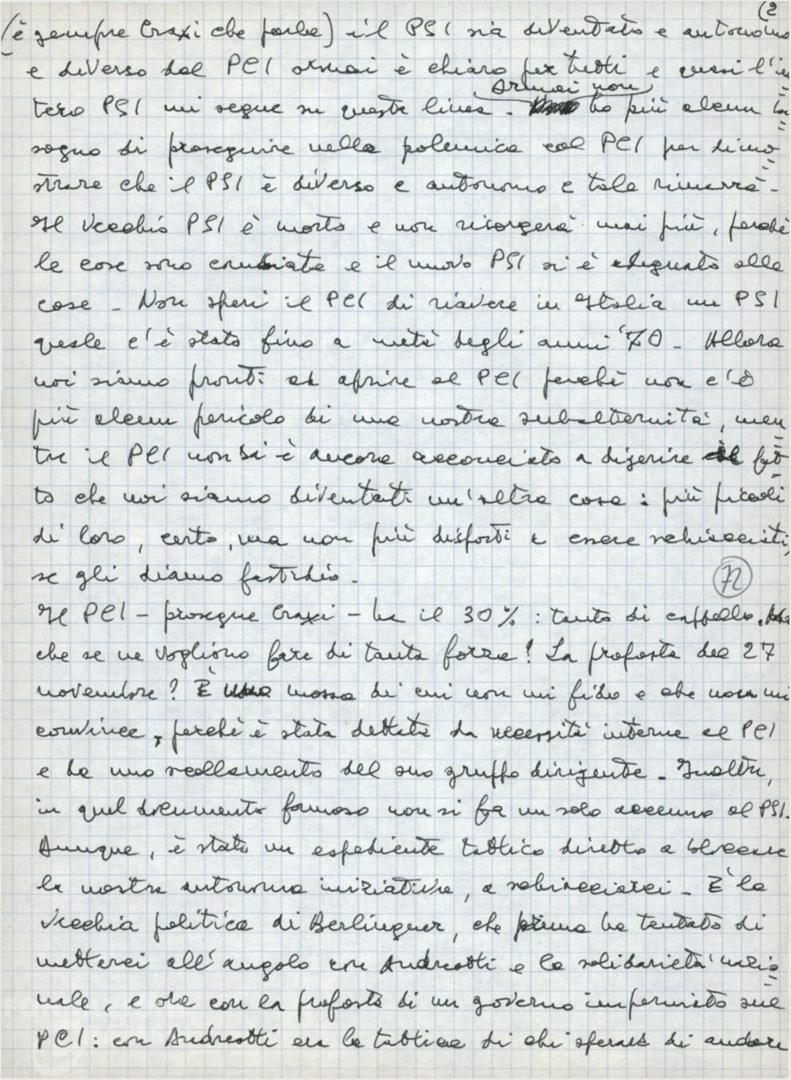 (2
(è sempre Craxi che parla) il PSI sia diventato e autonomo
e diverso dal PCI ormai è chiaro per tutti e quasi l'in
Ormai non
tero PSI mi segue su questa linea - ho più alcun bi
sogno di proseguire nella polemica col PCI per dimo
strare che il PSI è diverso e autonomo e tale rimarrà -
Il vecchio PSI è morto e non risorgerà mai più, perché
le cose sono cambiate e il nuovo PSI si è adeguato alle
cose - Non speri il PCI di riavere in Italia un PSI
quale c'è stato fino a metà degli anni '70 - Allora
noi siamo pronti ad aprire al PCI perché non c'è
più alcun pericolo di una nostra subalternità, men
tre il PCI non si è ancora acconciato a digerire il fat
to che noi siamo diventati un'altra cosa : più piccoli
di loro, certo, ma non più disposti a essere schiacciati,
se gli diamo fastidio -
72
Il PCI - prosegue Craxi - ha il 30% : tanto di cappello. Ma
che se ne vogliono fare di tanta forza? La proposta del 27
novembre? È una mossa di cui non mi fido e che non mi
convince, perché è stata dettata da necessità interne al PCI
e da uno scollamento del suo gruppo dirigente - Inoltre,
in quel documento famoso non si fa un solo accenno al PSI.
Dunque, è stato un espediente tattico diretto a bloccare
la nostra autonoma iniziativa, a schiacciarci - È la
vecchia politica di Berlinguer, che prima ha tentato di
metterci all'angolo con Andreotti e la solidarietà nazio
nale, e ora con la proposta di un governo imperniato sul
PCI : con Andreotti era la tattica di chi sperava di andare